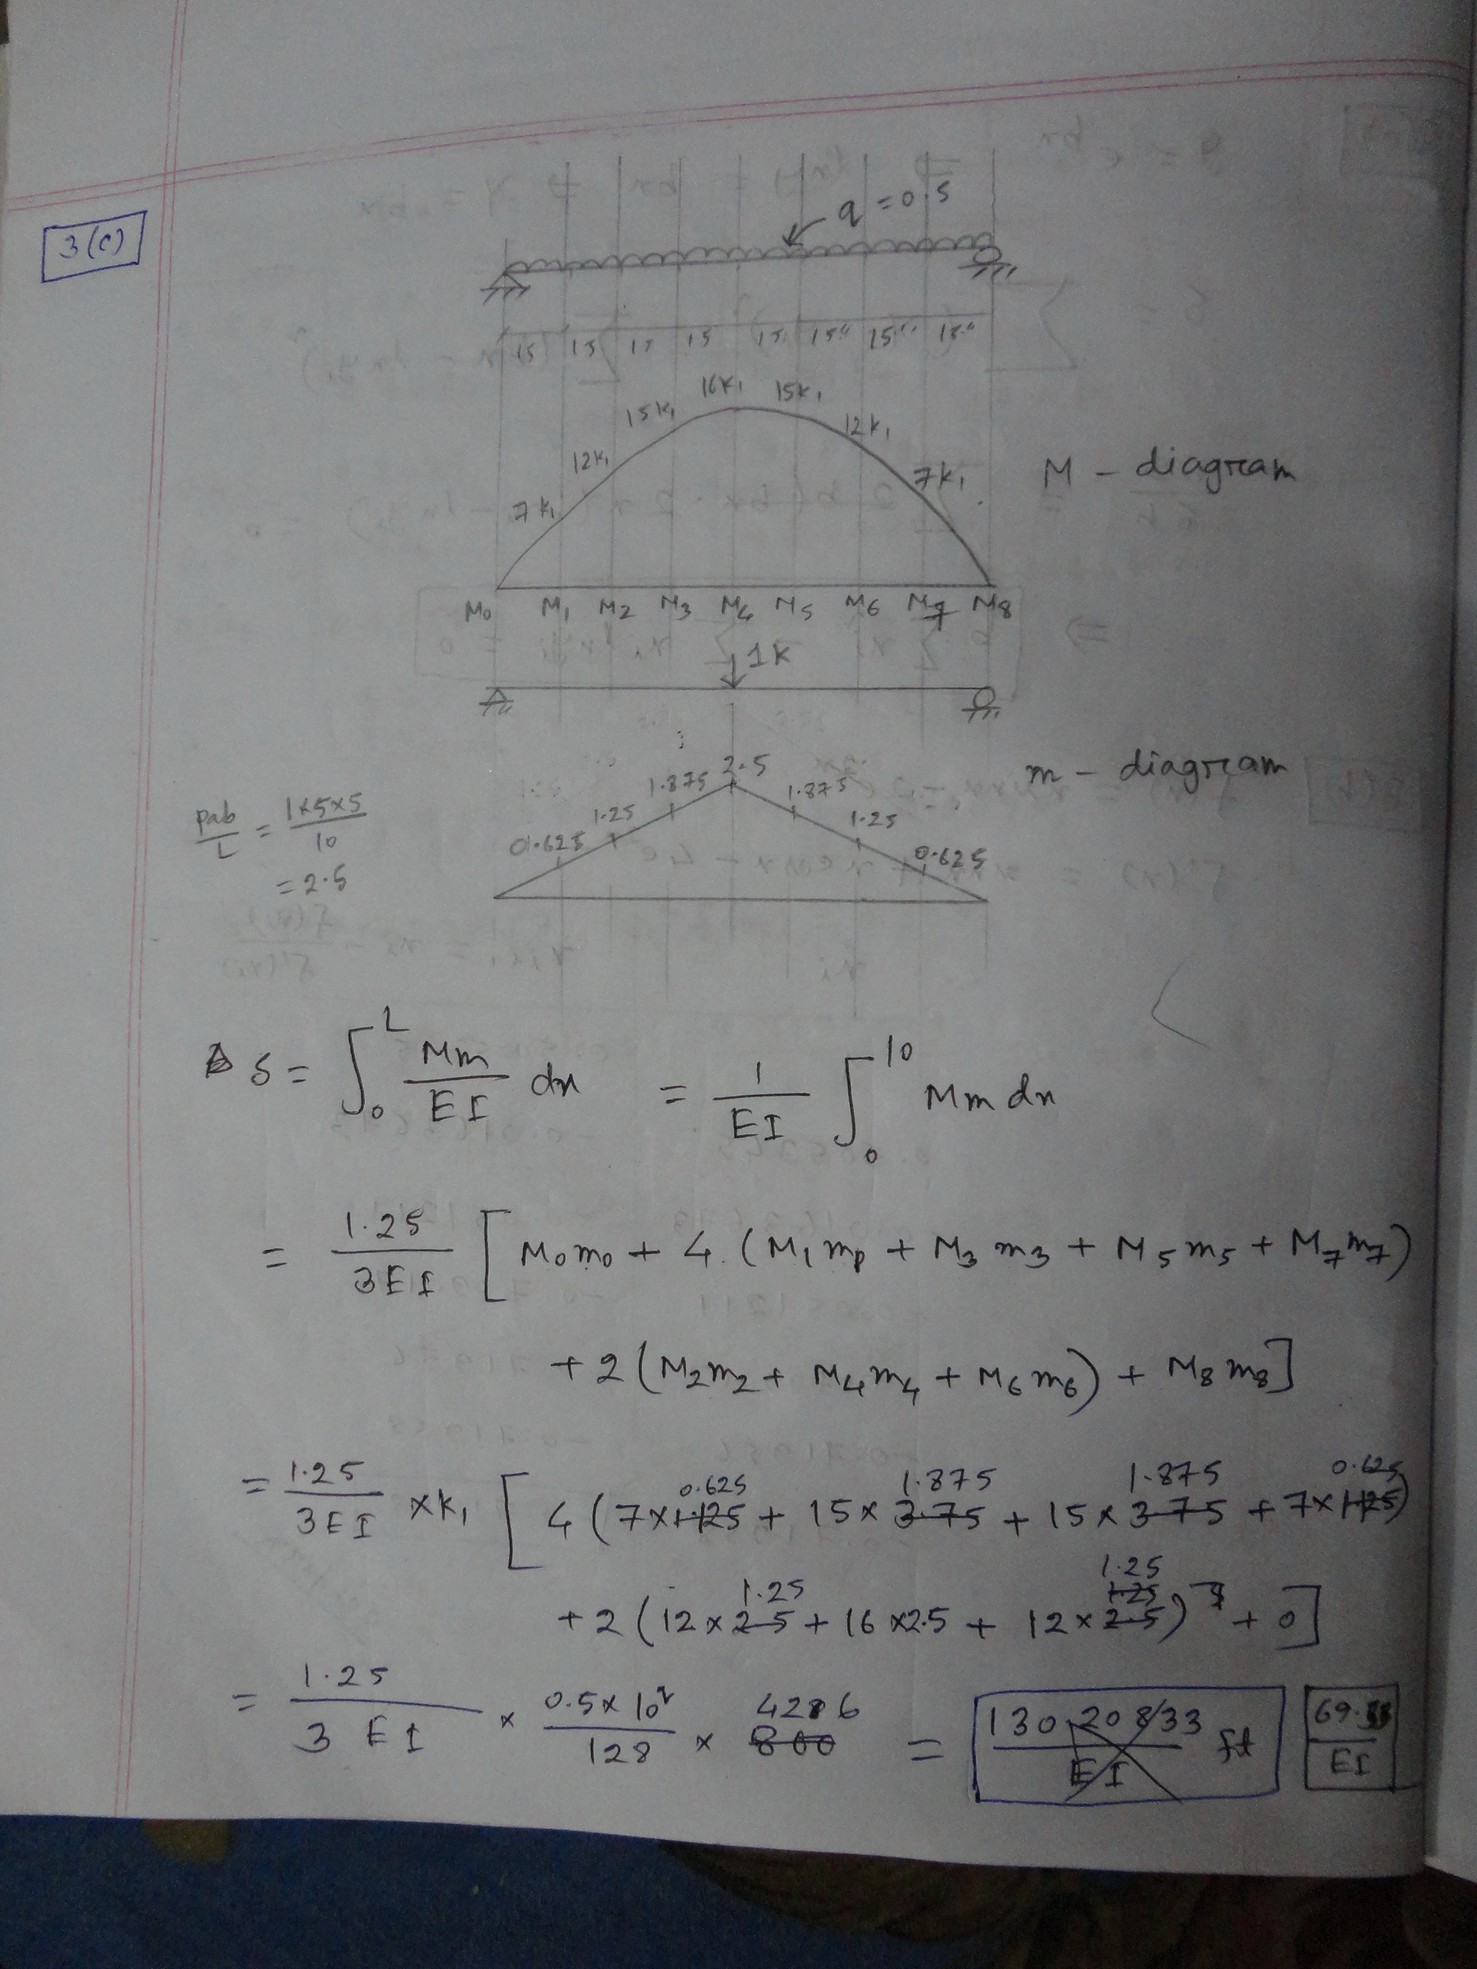 3(c)
q = 0.5
15 15 15 15 15 15" 15" 15"
7k₁ 12k₁ 15k₁ 16k₁ 15k₁ 12k₁ 7k₁
M - diagram
M₀ M₁ M₂ M₃ M₄ M₅ M₆ M₇ M₈
1K
m - diagram
0.625 1.25 1.875 2.5 1.875 1.25 0.625
Pab/L = 1×5×5/10
= 2.5
δ = ∫₀^L Mm/EI dx = 1/EI ∫₀^10 Mm dx
= 1.25/3EI [M₀m₀ + 4 (M₁m₁ + M₃m₃ + M₅m₅ + M₇m₇)
+ 2 (M₂m₂ + M₄m₄ + M₆m₆) + M₈m₈]
= 1.25/3EI × k₁ [4 (7×0.625 + 15×1.875 + 15×1.875 + 7×0.625)
+ 2 (12×1.25 + 16×2.5 + 12×1.25) + 0]
= 1.25/3EI × 0.5×10²/128 × = 130.20833/EI ft